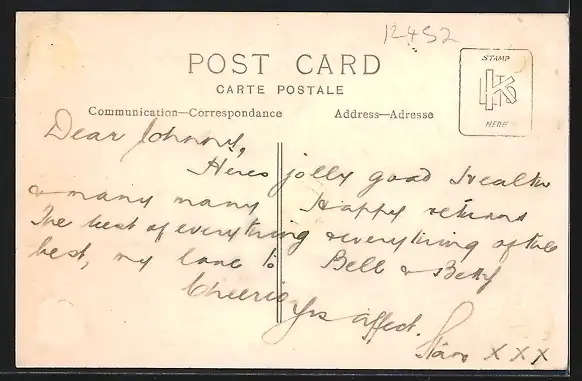 12452
POST CARD
CARTE POSTALE
STAMP
HERE
Communication—Correspondance
Address—Adresse
Dear Johnny,
Heres jolly good Health
& many many Happy returns
The best of everything & everything of the
best, my love to Bell & Betty
Cheerio
Yrs affect.
X X X